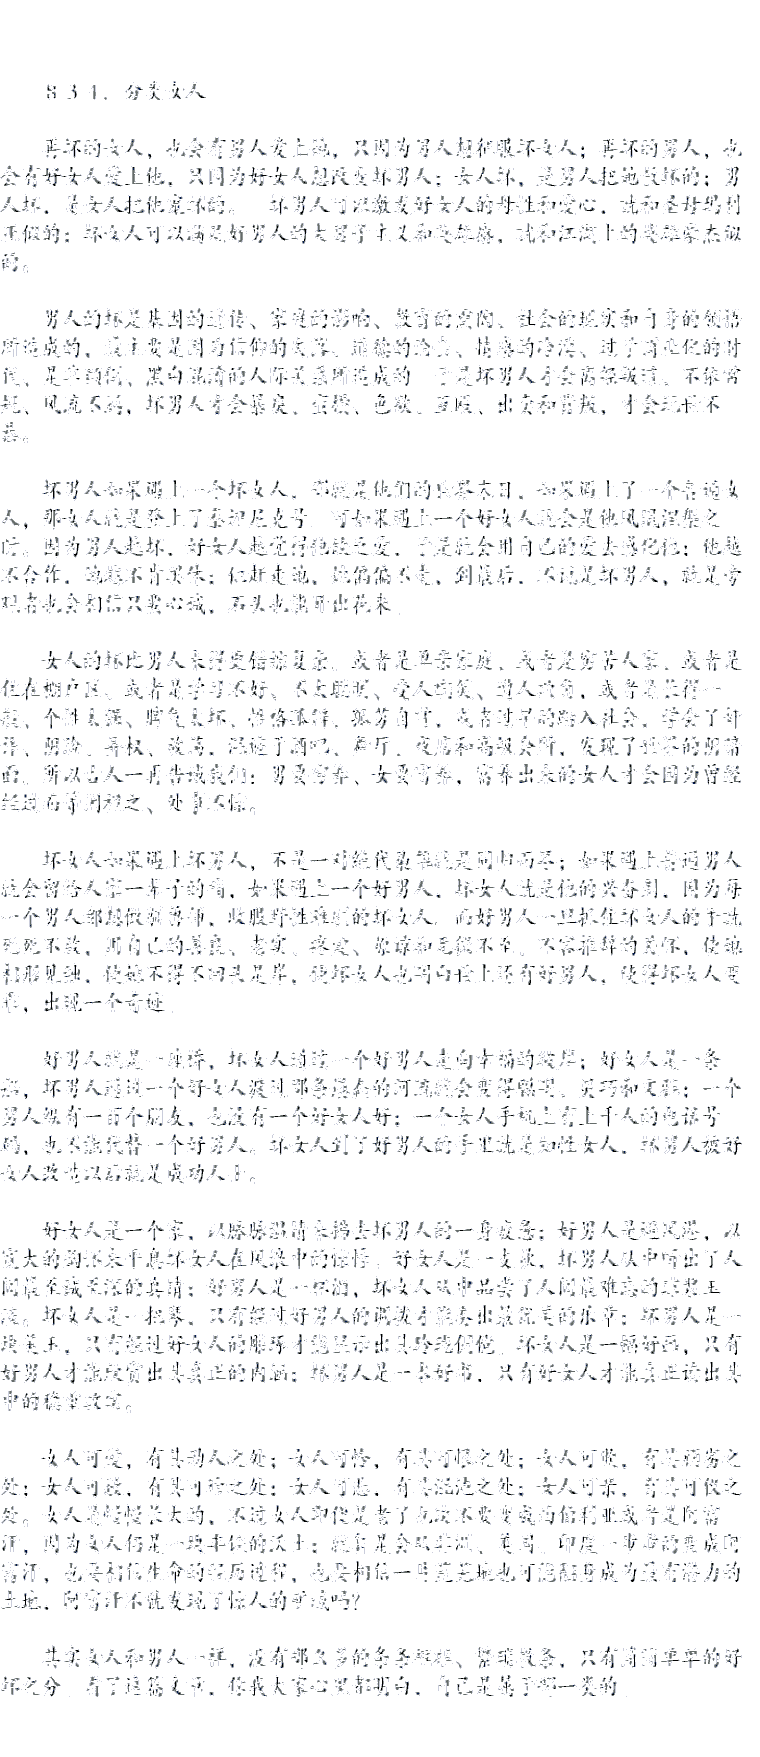 834．分类女人
再坏的女人，也会有男人爱上她，只因为男人想征服坏女人；再坏的男人，也
会有好女人爱上他，只因为好女人想改变坏男人；女人坏，是男人把她 坏的；男
人坏，是女人把他宠坏的。 坏男人可以激发好女人的母性和爱心，就和圣母玛利
亚似的；坏女人可以满足好男人的大男子主义和英雄感，就和江湖上的英雄豪杰似
的。
男人的坏是基因的遗传、家庭的影响、教育的熏陶、社会的现实和自身的领悟
所造成的，最主要是因为信仰的失落、道德的沦丧、情感的冷漠、过于商业化的时
代、是非颠倒、黑白混淆的人际关系所造成的 于是坏男人才会离经叛道、不修
、风流不羁，坏男人才会暴戾、 、色欲、 、出卖和背叛，才会 不
。
坏男人如果遇上一个坏女人，那就是他们的世界末日，如果遇上了一个普通女
人，那女人就是登上了泰坦尼克号 可如果遇上一个好女人就会是他凤凰涅槃之
时。因为男人越坏，好女人越觉得他缺乏爱，于是就会用自己的爱去感化他；他越
不合作，她越不肯罢休；他赶走她，她偏偏不走，到最后，不说是坏男人，就是旁
观者也会相信只要心诚，石头也能开出花来
女人的坏比男人来得更错综复杂。或者是单亲家庭、或者是穷苦人家、或者是
住在棚户区。或者是学习不好、不太聪明、受人嘲笑、遭人欺负，或者是长得一
般、个性太强、脾气太坏、性格孤僻、孤芳自赏，或者过早的踏入社会，学会了奸
诈、 、弄权、放荡，混迹于酒吧、舞厅、夜店和高级会所，发现了世界的阴暗
面。所以古人一再告诫我们：男要穷养、女要富养，富养出来的女人才会因为曾经
经过而等闲视之、处事不惊。
坏女人如果遇上坏男人，不是一对绝代枭雄就是同归而尽；如果遇上普通男人
就会留给人家一辈子的痛，如果遇上一个好男人，坏女人就是他的兴奋剂，因为每
一个男人都想做驯兽师，收服野性难驯的坏女人。而好男人一旦抓住坏女人的手就
死死不放，用自己的善良、老实、疼爱、原谅和无微不至、不容推辞的关怀，使她
相形见绌，使她不得不回头是岸，使坏女人也明白世上还有好男人，使得坏女人变
乖，出现一个奇迹
好男人就是一座桥，坏女人通过一个好男人走向幸福的彼岸；好女人是一条
船，坏男人通过一个好女人渡过那条混浊的河流就会变得聪明、灵巧和文雅；一个
男人纵有一百个朋友，也没有一个好女人好；一个女人手机上有上千人的电话号
码，也不能代替一个好男人。坏女人到了好男人的手里就是知性女人，坏男人被好
女人改造以后就是成功人士。
好女人是一个家，以脉脉温情来掸去坏男人的一身疲惫；好男人是避风港，以
宽大的胸怀来平息坏女人在风浪中的惊悸 好女人是一支歌，坏男人从中听出了人
间最至诚至深的真情；好男人是一杯酒，坏女人从中品尝了人间最难忘的琼浆玉
液。坏女人是一把琴，只有经过好男人的调拨才能奏出最优美的乐章；坏男人是一
块美玉，只有经过好女人的雕琢才能显示出其玲珑倜傥 坏女人是一幅好画，只有
好男人才能欣赏出其真正的内涵；坏男人是一本好书，只有好女人才能真正读出其
中的稳重敦实。
女人可爱，有其动人之处；女人可怜，有其可恨之处；女人可 ，有其 之
处；女人可敬，有其可怜之处；女人可恶，有其 之处；女人可亲，有其可 之
处。女人是慢慢长大的，不过女人即使是老了也决不要变成西伯利亚或者是阿富
汗，因为女人仍是一块丰饶的沃土；就算是会从非洲、美国、印度一步步的变成阿
富汗，也要相信生命的经历过程，也要相信一片荒芜地也可能翻身成为最有潜力的
土地，阿富汗不就发现了惊人的矿藏吗？
其实女人和男人一样，没有那么多的条条框框、繁琐教条，只有简简单单的好
坏之分 看了这篇文章，你我大家心里都明白，自己是属于哪一类的